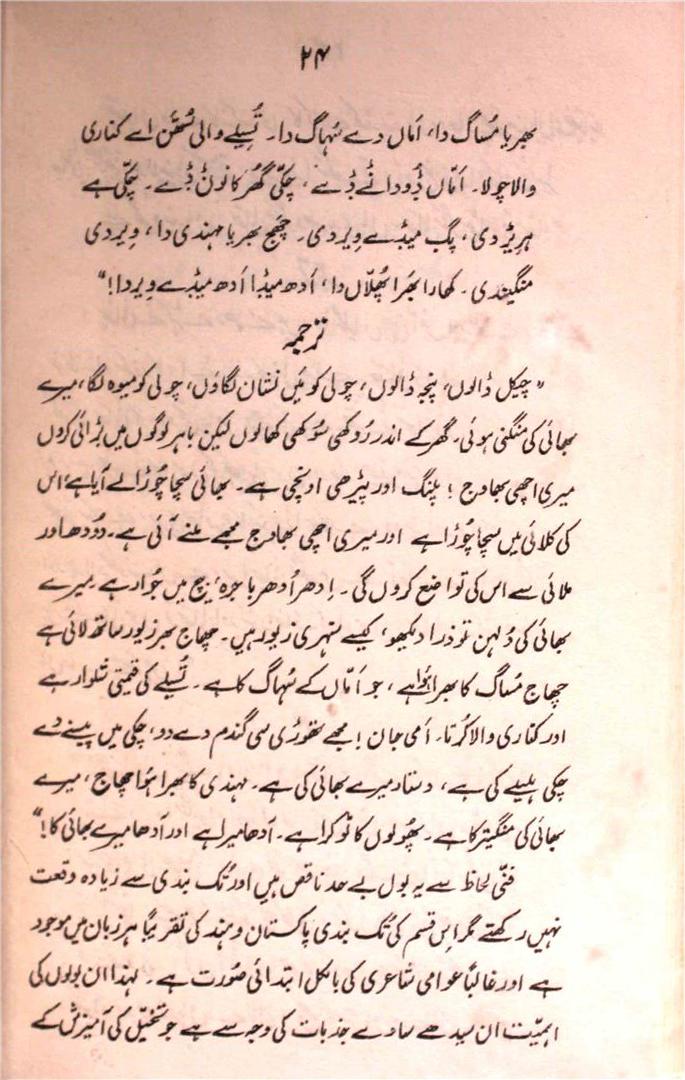 ۲۴
بھریا مُساگ دا، اَماں دے سُہاگ دا۔ تُسیلے والی سُتھّن اے کناری
والا چولا۔ اَمّاں ڈُو دانے ڈے، چکّی گھُر کانوں ڈے۔ چکّی ہے
ہریڑ دی، پگ میڈے وِیر دی۔ چھج بھریا مہندی دا، وِیر دی
منگیندی۔ کھارا بھَرا پھُلّاں دا، اَدھ میڈا اَدھ میڈے وِیر دا!"
ترجمہ
"چیکل ڈالوں، پنجہ ڈالوں، چولی کو مَیں نشان لگاؤں، چولی کو میوہ لگا، میرے
بھائی کی منگنی ہوئی۔ گھر کے اندر رُوکھی سُوکھی کھالوں لیکن باہر لوگوں میں بڑائی کروں
میری اچھی بھاوج! پلنگ اور پیڑھی اونچی ہے۔ بھائی سچا چُوڑا لے آیا ہے، اس
کی کلائی میں سچا چُوڑا ہے اور میری اچھی بھاوج مجھے ملنے آئی ہے۔ دُودھ اور
ملائی سے اس کی تواضع کروں گی۔ اِدھر اُدھر باجرہ، بیچ میں جُوار ہے میرے
بھائی کی دُلہن تو ذرا دیکھو، کیسے سنہری زیور ہیں۔ چھاج بھر زیور ساتھ لائی ہے
چھاج مُساگ کا بھرا ہُوا ہے، جو اَمّاں کے سُہاگ کا ہے۔ تُسیلے کی قیمتی شلوار ہے
اور کناری والا کُرتا۔ اَمی جان! مجھے تھوڑی سی گندم دے دو، چکی میں پیسنے دے
چکی ہلیلے کی ہے، دستار میرے بھائی کی ہے۔ مہندی کا بھرا ہُوا چھاج، میرے
بھائی کی منگیتر کا ہے۔ پھُولوں کا ٹوکرا ہے۔ آدھا میرا ہے اور آدھا میرے بھائی کا!"
فنّی لحاظ سے یہ بول بے حد ناقص ہیں اور تُک بندی سے زیادہ وقعت
نہیں رکھتے مگر اِس قسم کی تُک بندی پاکستان و ہند کی تقریباً ہر زبان میں موجود
ہے اور غالباً عوامی شاعری کی بالکل ابتدائی صُورت ہے۔ لہٰذا ان بولوں کی
اہمیّت ان سیدھے سادے جذبات کی وجہ سے ہے جو تخیّل کی آمیزش کے